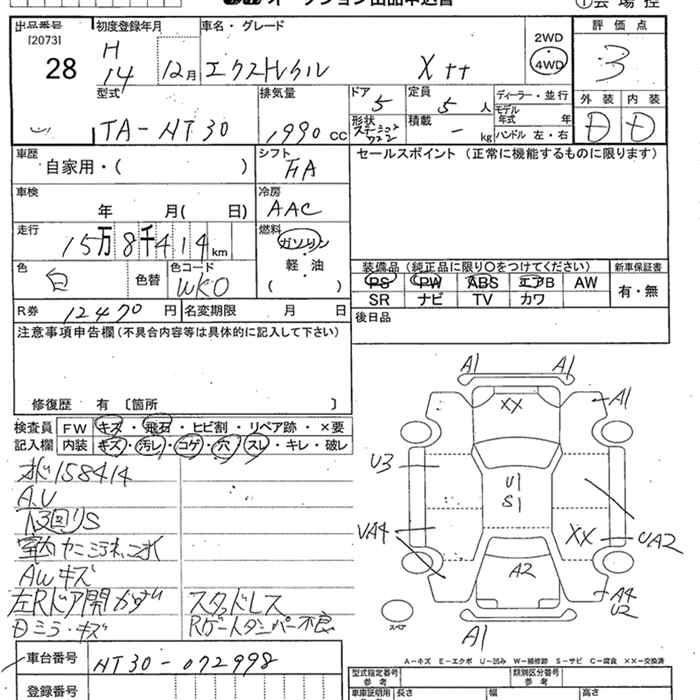 出品番号
[2073]
28
初度登録年月
H
14
12月
車名・グレード
エクストレイル
Xtt
2WD
4WD
評価点
3
外装 内装
D D
型式
TA-NT30
排気量
1990 cc
ドア
5
定員
5 人
形状
積載
- kg
ディーラー・並行
モデル年式 年
ハンドル 左・右
車歴
自家用・( )
シフト
FA
セールスポイント (正常に機能するものに限ります)
車検
年 月( 日)
冷房
AAC
走行
15万8千414km
燃料
ガソリン
・
軽油
( )
色
白
色替
色コード
WK0
装備品 (純正品に限り○をつけてください)
PS PW ABS エアB AW
SR ナビ TV カワ
新車保証書
有・無
R券 12470 円
名変期限 月 日
後日品
注意事項申告欄(不具合内容等は具体的に記入して下さい)
修復歴 有 〔箇所 〕
検査員
記入欄
FW キズ・飛石・ヒビ割・リペア跡・×要
内装 キズ・汚レ・コゲ・穴・スレ・キレ・破レ
158414
A.U
下回りS
AWキズ
左Rドア開
スタッドレス
Dミラーキズ
Rゲートダンパー不良
車台番号 NT30-072998
登録番号
A1 A1
XX
A1
U3
U1
S1
UA4
XX
UA2
A2
A4
U2
スペア
A1
A-キズ E-エクボ U-凹み W-補修跡 S-サビ C-腐食 XX-交換済
型式指定番号
参考
類別区分番号
参考
車庫証明用
長さ 幅 高さ